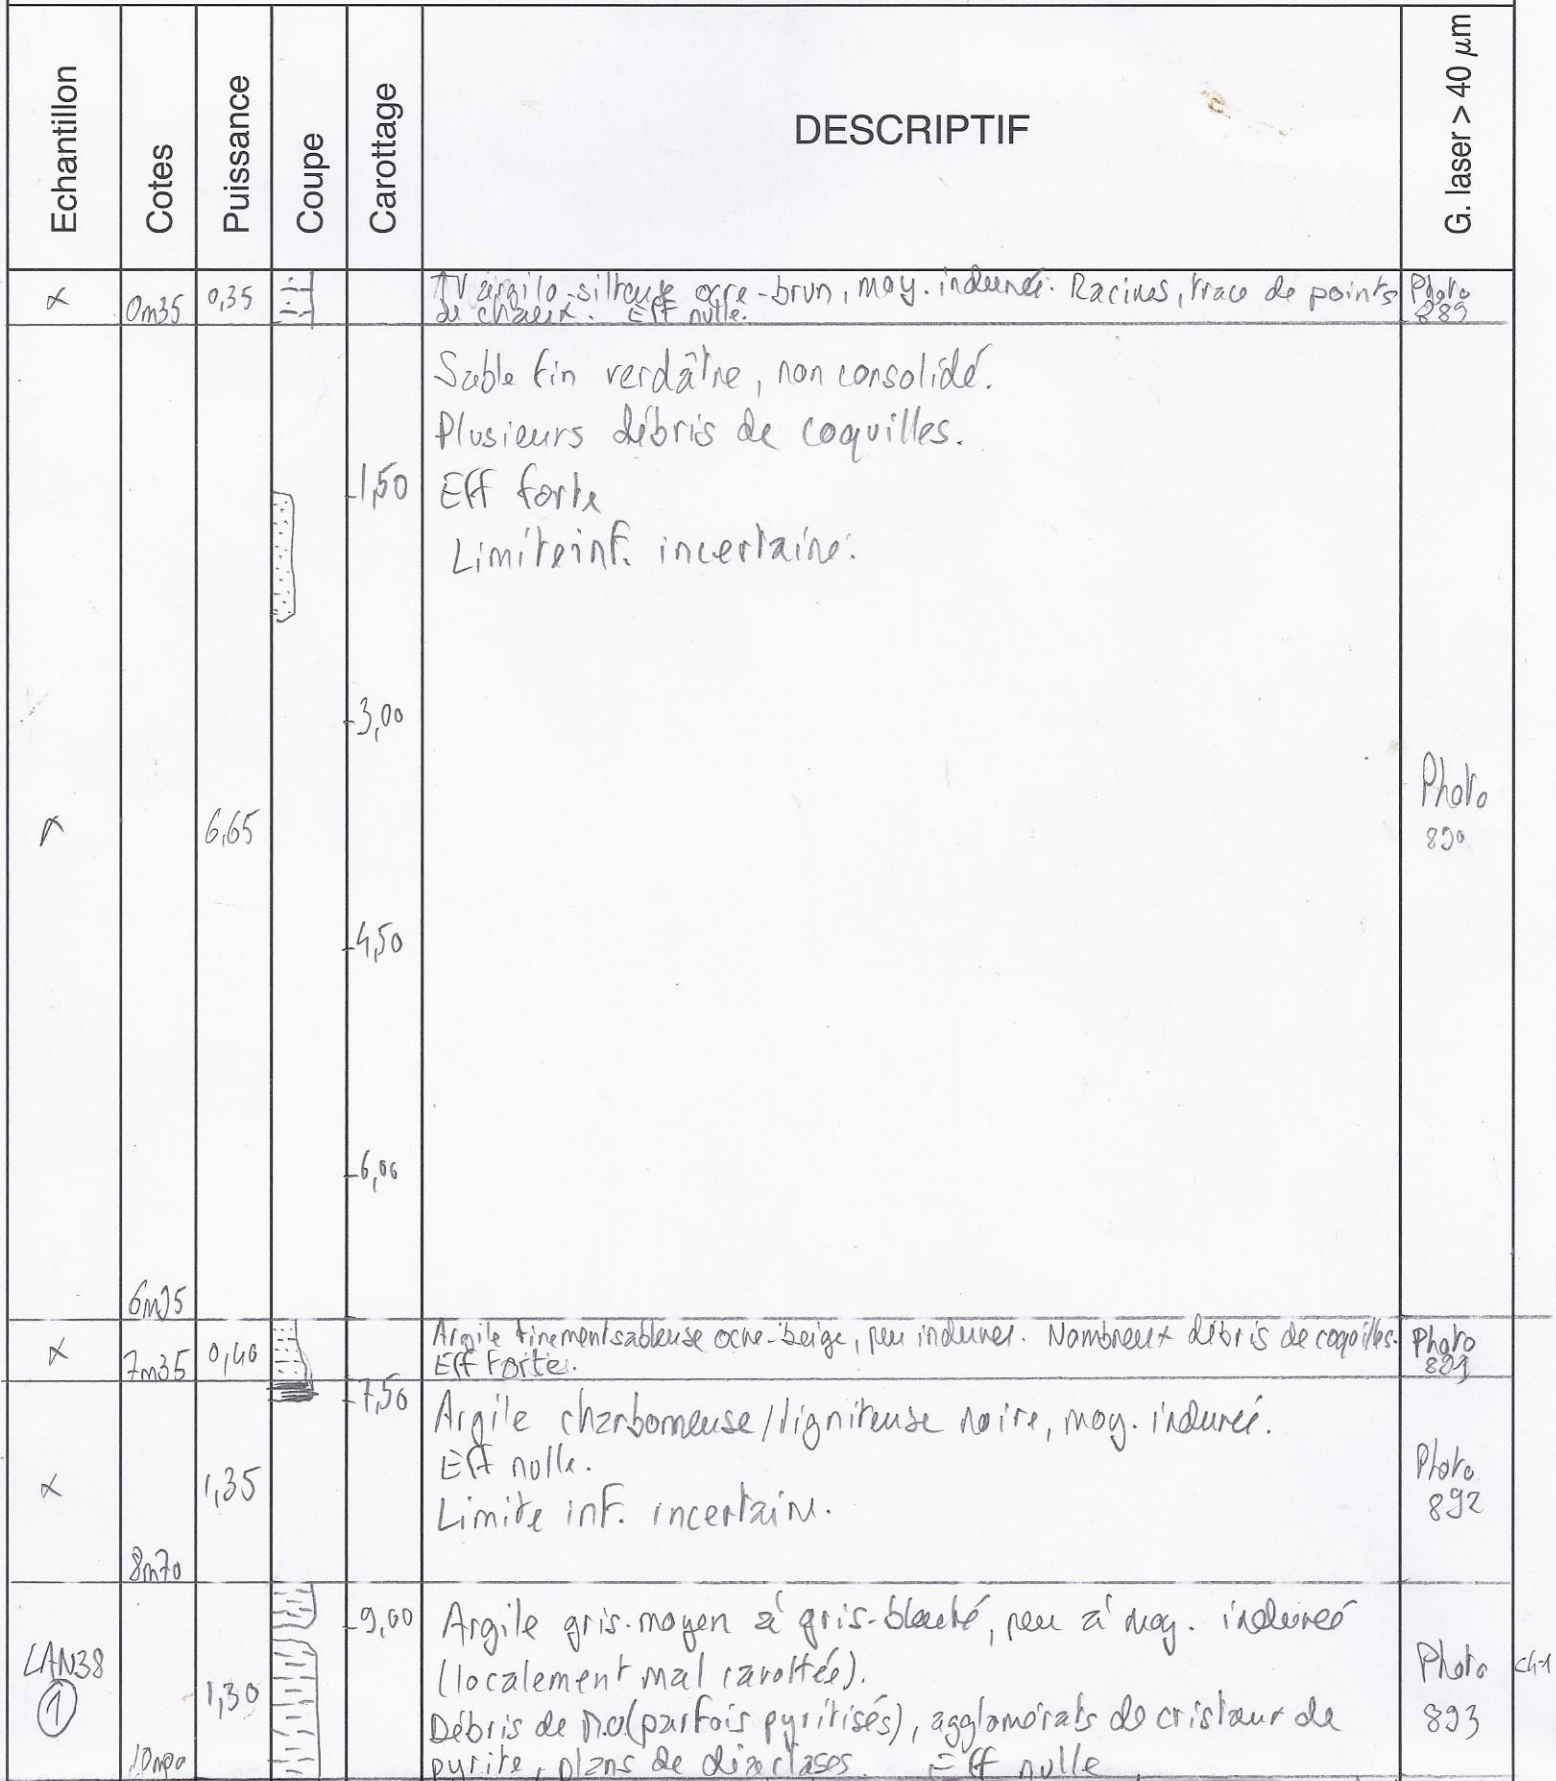 Echantillon
Cotes
Puissance
Coupe
Carottage
DESCRIPTIF
G. laser > 40 µm
0m35
0,35
TV argilo-silteuse ocre-brun, moy. indurée. Racines, trace de points
de chaux. Eff nulle.
Photo
889
Sable fin verdâtre, non consolidé.
Plusieurs débris de coquilles.
1,50
Eff forte
Limite inf. incertaine.
3,00
6,65
Photo
890
4,50
6,00
6m95
7m35
0,40
Argile finement sableuse ocre-beige, peu indurée. Nombreux débris de coquilles.
Eff Forte.
Photo
891
7,50
Argile charbonneuse/ligniteuse noire, moy. indurée.
Eff nulle.
Limite inf. incertaine.
1,35
Photo
892
8m70
9,00
Argile gris-moyen à gris-bleuté, peu à moy. indurée
(localement mal carottée).
Débris de M.O (parfois pyritisés), agglomérats de cristaux de
pyrite, plans de diaclases. Eff nulle
LAN38
1
1,30
10m00
Photo
893